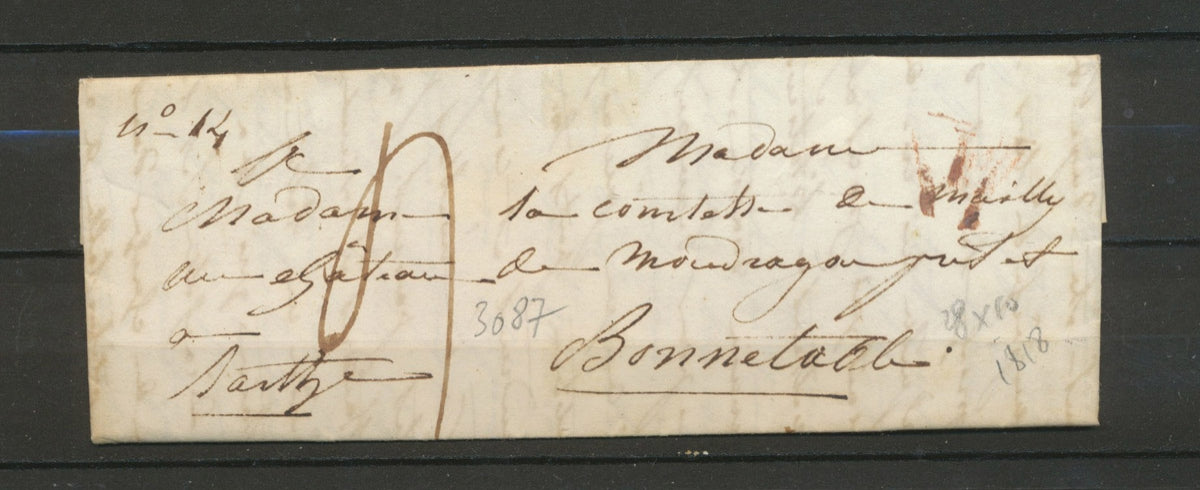 N° 14
A Madame
Madame la comtesse de Mailly
au château de Mondragon près et
à Bonnetable.
Sarthe
3087
28 x
1818